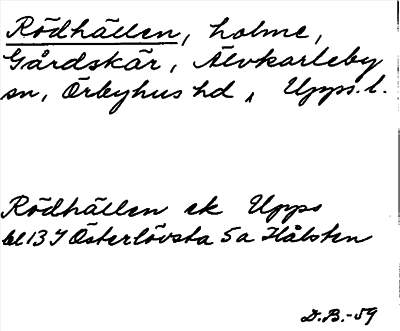 Rödhällen, holme,
Gårdskär, Älvkarleby
sn, Örbyhus hd, Upps. l.
Rödhällen ek Upps
bl 13 I Österlövsta 5a Hålsten
D.B.-59